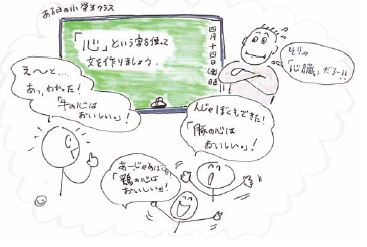 ある日の小学生クラス
「心」という字を使って
文を作りましょう。
四月十四日(金)
それは
「心臓」だろー!!
え〜と…
あっ、わかった!
「牛の心は
おいしい。」!
んじゃぼくもできた!
「豚の心は
おいしい。」!
あーじゃあぼくも!
「鶏の心は
おいしい。」!